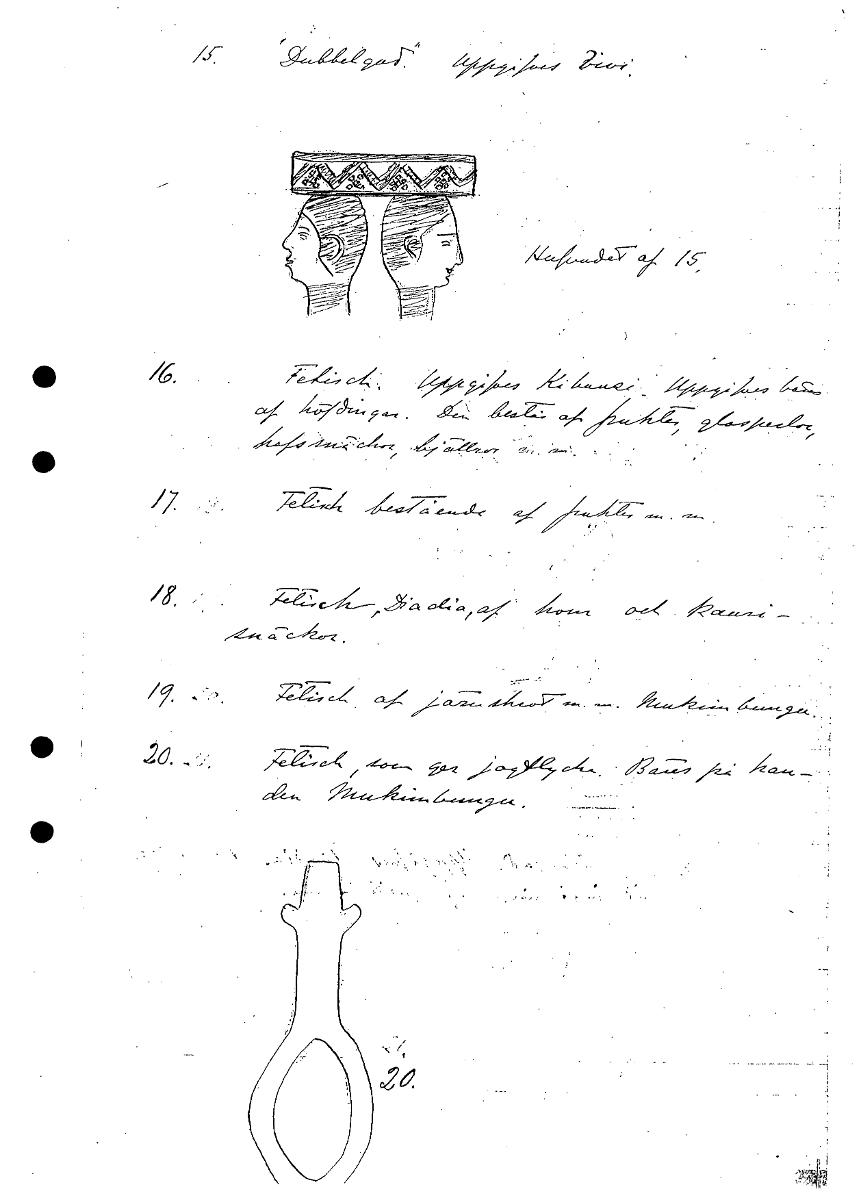 15. "Dubbelgud." Uppgifves Vivi.
Hufvudet af 15.
16. Fetisch. Uppgifves Kibunsi. Uppgifves bäras
af höfdingar. Den består af frukter, glasperlor,
hafssnäckor, bjällror m.m.
17. Fetisch bestående af frukter m. m.
18. Fetisch, Diadia, af horn och kauri-
snäckor.
19. Fetisch af järnskrot m. m. Mukimbungu.
20. Fetisch, som ger jagtlycka. Bäres på han-
den Mukimbungu.
20.